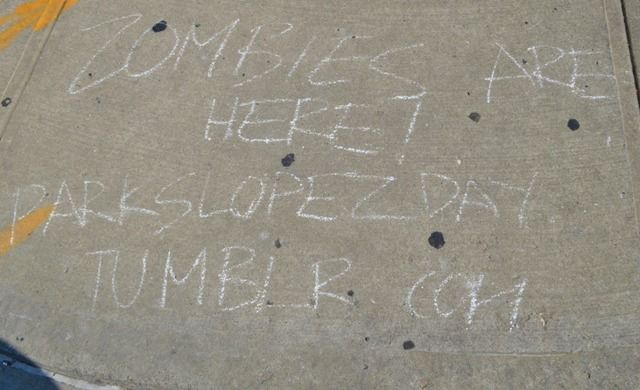 ZOMBIES ARE
HERE!
PARKSLOPEZDAY
TUMBLR COM